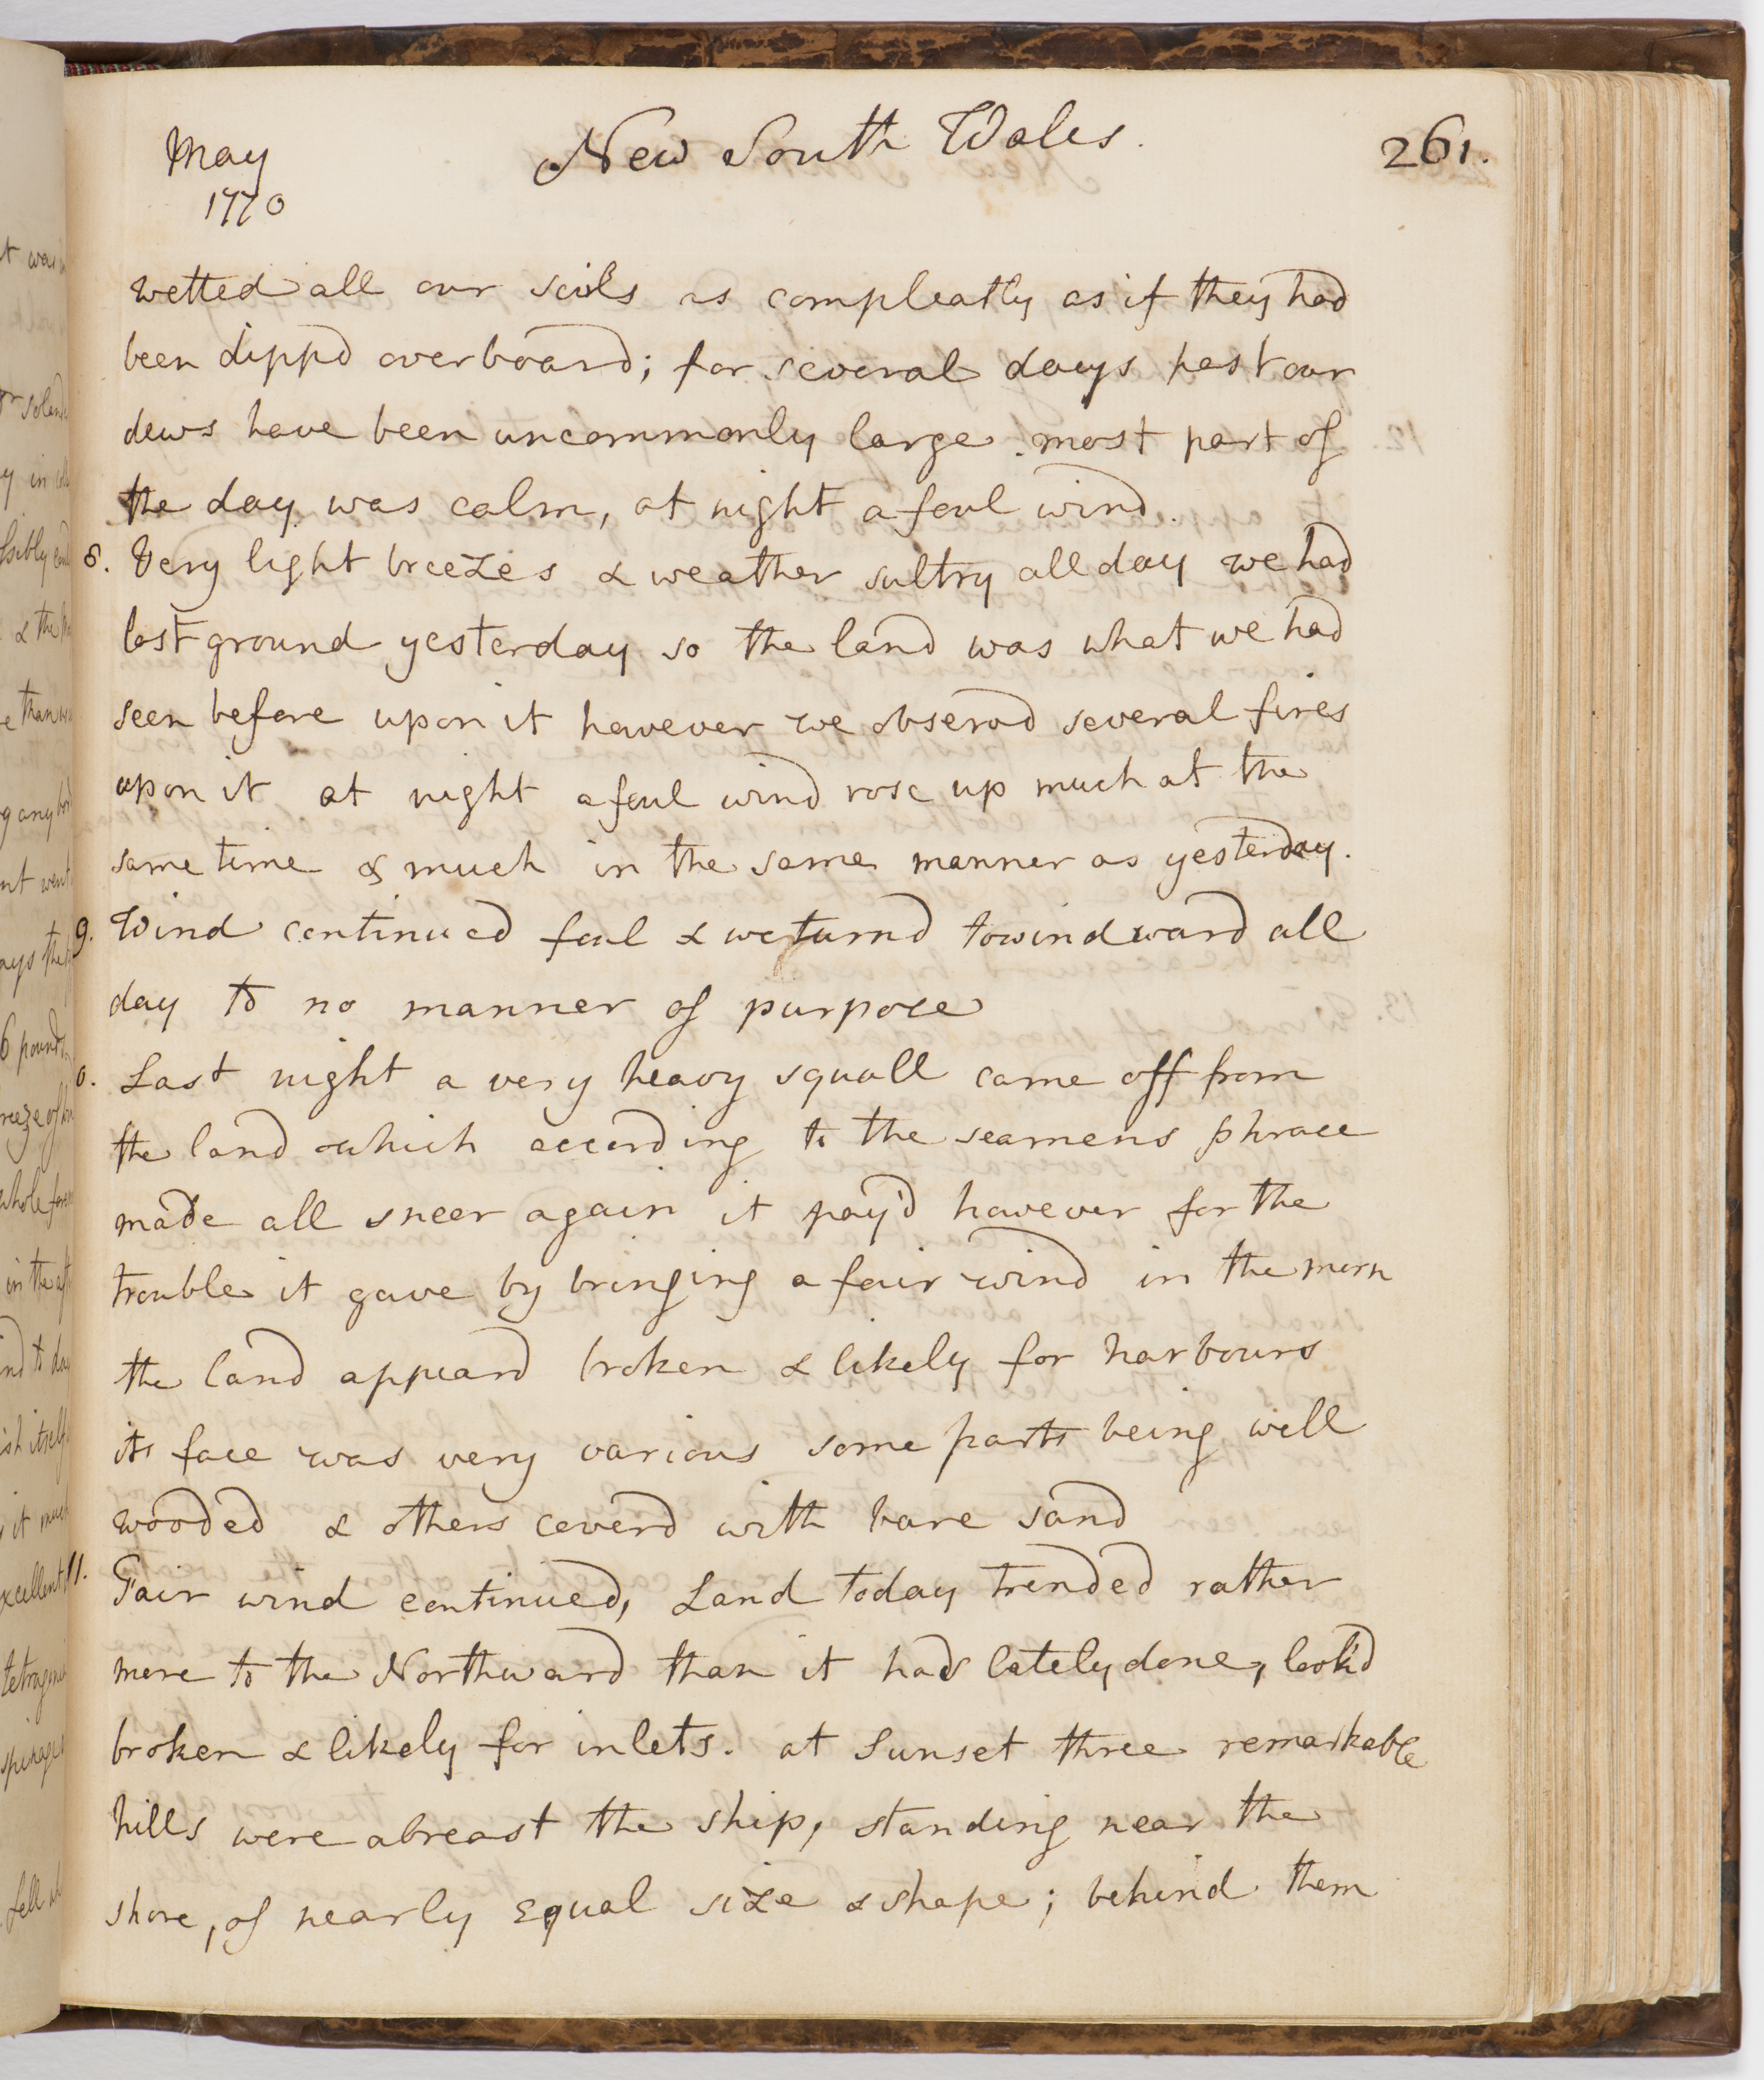 May
1770
New South Wales.
261.
wetted all our sails as compleatly as if they had
been dippd overboard; for several days past our
dews have been uncommonly large. most part of
the day was calm, at night a foul wind.
8. Very light breezes & weather sultry all day we had
lost ground yesterday so the land was what we had
seen before upon it however we observd several fires
upon it at night a foul wind rose up much at the
same time & much in the same manner as yesterday.
9. Wind continued foul & we turnd to windward all
day to no manner of purpose
0. Last night a very heavy squall came off from
the land which according to the seamens phrase
made all sneer again it pay'd however for the
trouble it gave by bringing a fair wind in the morn
the land appeard broken & likely for harbours
its face was very various some parts being well
wooded & others coverd with bare sand
11. Fair wind continued, Land today trended rather
more to the Northward than it had lately done, look'd
broken & likely for inlets. at Sunset three remarkable
hills were abreast the ship, standing near the
shore, of nearly equal size & shape; behind them